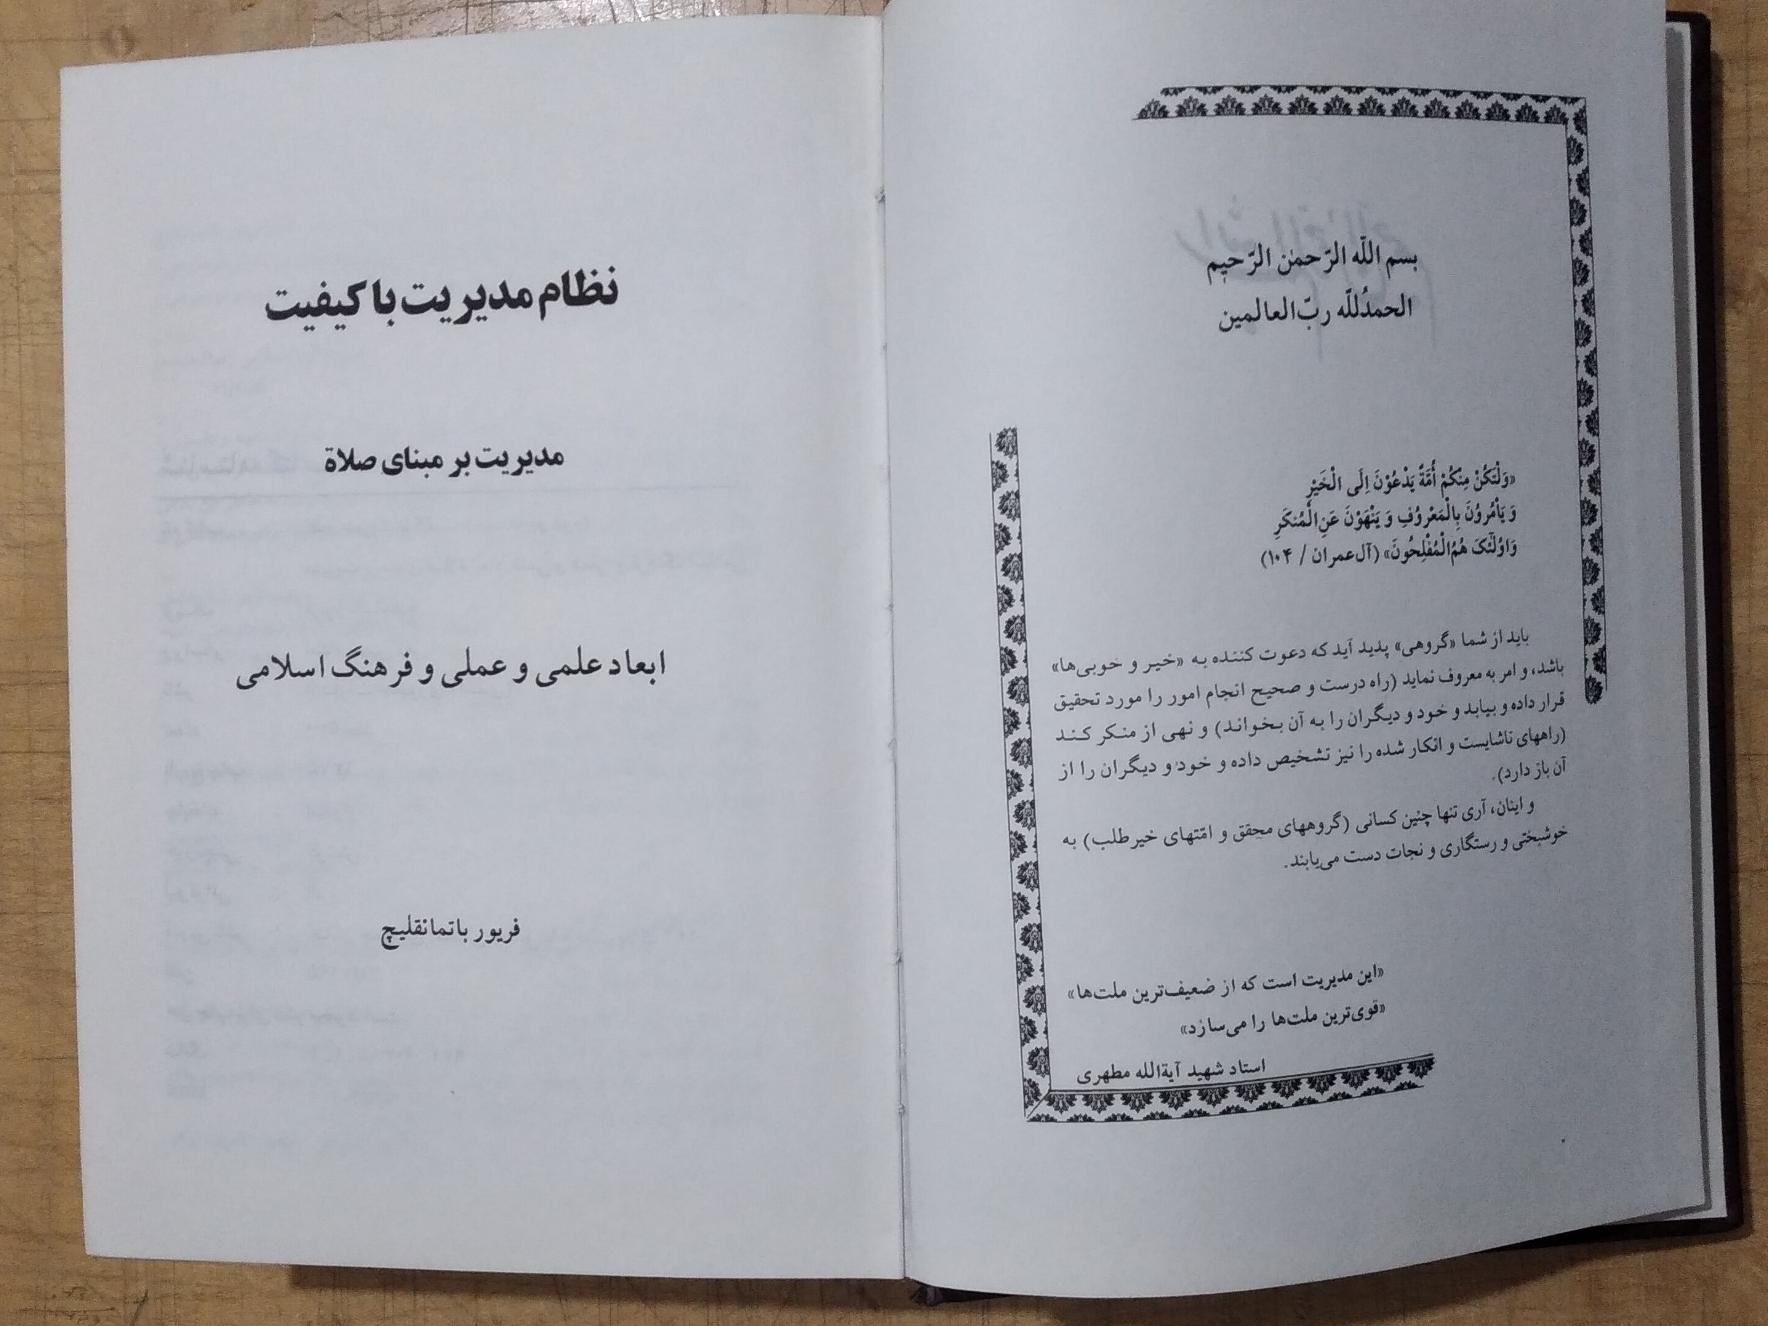 بسم اللّه الرّحمن الرّحیم
الحمدُللّه ربّ‌العالمین
«وَلْتَکُنْ مِنْکُمْ أُمَّةٌ یَدْعُوْنَ اِلَی الْخَیْرِ
وَ یَأمُروُنَ بِالْمَعْروُفِ وَ یَنْهَوْنَ عَنِ‌الْمُنکَرِ
وَاوُلٰئکَ هُمُ‌الْمُفْلِحُونَ» (آل‌عمران / ۱۰۴)
باید از شما «گروهی» پدید آید که دعوت کننده به «خیر و خوبی‌ها»
باشد، و امر به معروف نماید (راه درست و صحیح انجام امور را مورد تحقیق
قرار داده و بیابد و خود و دیگران را به آن بخواند) و نهی از منکر کند
(راههای ناشایست و انکار شده را نیز تشخیص داده و خود و دیگران را از
آن باز دارد).
و اینان، آری تنها چنین کسانی (گروههای محقق و امّتهای خیرطلب) به
خوشبختی و رستگاری و نجات دست می‌یابند.
«این مدیریت است که از ضعیف‌ترین ملت‌ها»
«قوی‌ترین ملت‌ها را می‌سازد»
استاد شهید آیةالله مطهری
نظام مدیریت با کیفیت
مدیریت بر مبنای صلاة
ابعاد علمی و عملی و فرهنگ اسلامی
فریور باتمانقلیچ